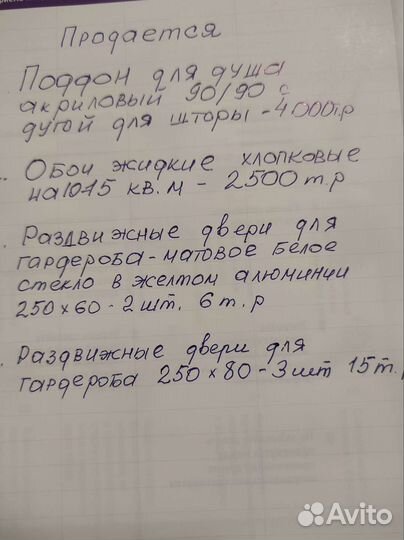 Продается
Поддон для душа
акриловый 90/90 с
дугой для шторы - 4000т.р
Обои жидкие хлопковые
на 1045 кв.м - 2500т.р
Раздвижные двери для
гардероба - матовое белое
стекло в желтом алюминии
250х60 - 2 шт. 6 т.р
Раздвижные двери для
гардероба 250х80 - 3 шт 15 т.
Avito